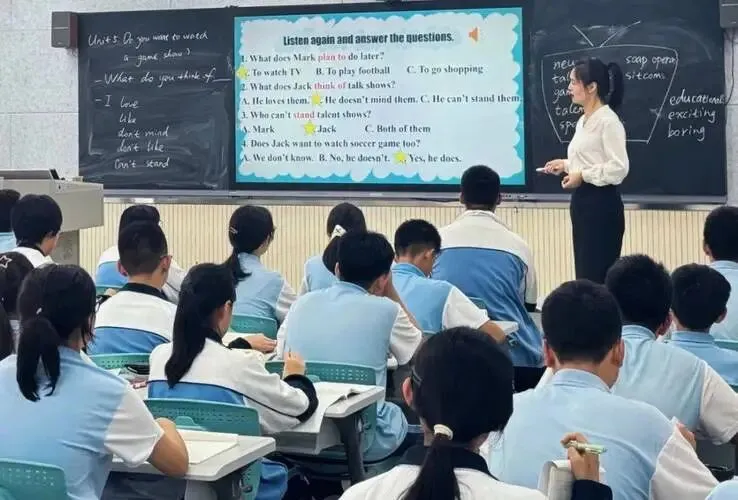 Unit 5. Do you want to watch
a game show?
– What do you think of
– I love
like
don't mind
don't like
can't stand
Listen again and answer the questions.
1. What does Mark plan to do later?
To watch TV B. To play football C. To go shopping
2. What does Jack think of talk shows?
A. He loves them. He doesn't mind them. C. He can't stand them.
3. Who can't stand talent shows?
A. Mark Jack C. Both of them
4. Does Jack want to watch soccer game too?
A. We don't know. B. No, he doesn't. Yes, he does.
soap opera
sitcoms
educational
exciting
boring